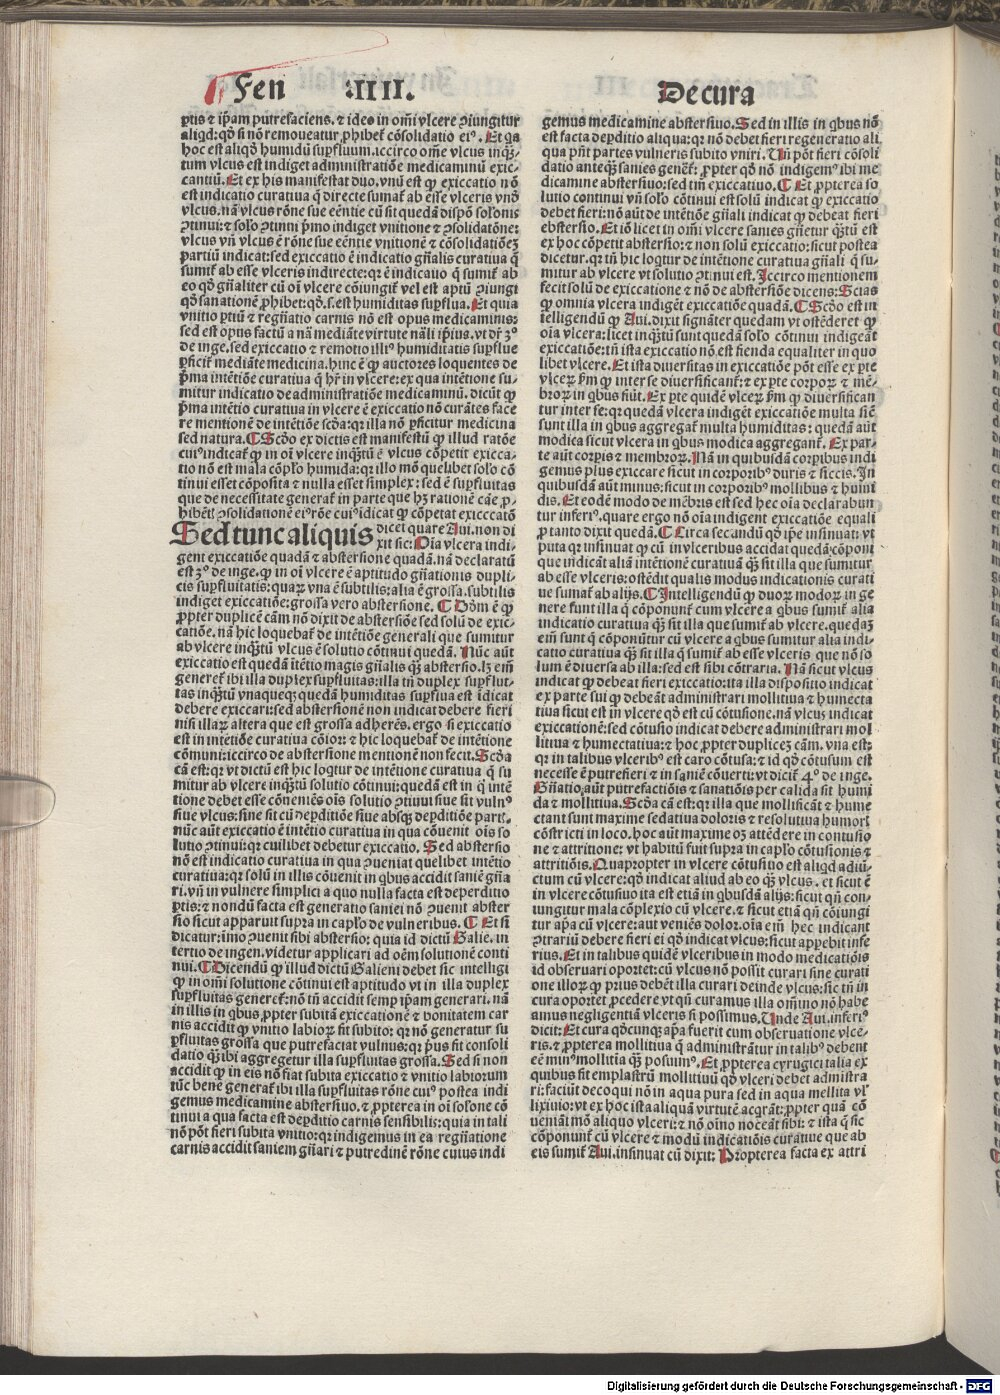 Fen .IIII. De cura
ptis ⁊ ip̄am putrefaciens. ⁊ ideo in om̄i vlcere ꝯiungitur
aliqd: qḋ si nō remoueatur ꝓhibet cōsolidatio eiꝰ. Et qa
hoc est aliqḋ humidū supfluum. iccirco om̄e vlcus inqꝫ-
tum vlcus est indiget administratiōe medicaminū exic-
cantiū. Et ex his manifestat duo. vnū est qp exiccatio nō
est indicatio curatiua q̄ directe sumat᷑ ab esse vlceris vnḋ
vlcus. nā vlcus rōne sue eēntie cū sit quedā dispō solōnis
ꝯtinui: ⁊ solo ꝯtinui p̄mo indiget vnitione ⁊ ꝯsolidatōne:
vlcus vn̄ vlcus ē rōne sue eēntie vnitionē ⁊ cōsolidatiōeꝫ
partiū indicat: sed exiccatio ē indicatio gn̄alis curatiua q̄
sumit᷑ ab esse vlceris indirecte: qꝛ ē indicatio q̄ sumit᷑ ab
eo qḋ gn̄aliter cū oī vlcere cōiungit᷑ vel est aptū ꝯiungi
qḋ sanationē ꝓhibet: qḋ. s. est humiditas supflua. Et quia
vnitio ptiū ⁊ regn̄atio carnis nō est opus medicaminis:
sed est opus factū a nā mediāte virtute nāli ip̄ius. vt dr̄ 3ꝰ
de inge. sed exiccatio ⁊ remotio illiꝰ humiditatis supflue
ꝑficit᷑ mediāte medicina. hinc ē qp auctores loquentes de
p̄ma intētiōe curatiua q̄ hr̄i in vlcere: ex qua intētione su-
mitur indicatio de administratiōe medicaminū. dicūt qp
p̄ma intētio curatiua in vlcere ē exiccatio nō curātes face
re mentionē de intētiōe scḋa: qꝛ illa nō ꝑficitur medicina
sed natura. ¶ Scḋo ex dictis est manifestū qp illud ratōe
cuiꝰ indicat᷑ qp in oī vlcere inqꝫtū ē vlcus cōpetit exicca-
tio nō est mala cōplo humida: qꝛ illo mō quelibet solo cō
tinui esset cōposita ⁊ nulla esset simplex: sed ē supfluitas
que de necessitate generat᷑ in parte que hꝫ rationē cāe ꝓ-
hibētis ꝯsolidationē eiꝰ rōe cuiꝰ idicat᷑ qp cōpetat exiccatō
Sed tunc aliquis dicet quare Aui. non di
xit sic: Oīa vlcera indi-
gent exiccatiōe quadā ⁊ abstersione quadā. nā declaratū
est 3ꝰ de inge. qp in oī vlcere ē aptitudo gn̄ationis dupli-
cis supfluitatis: quaꝝ vna ē subtilis: alia ē grossa. subtilis
indiget exiccatiōe: grossa vero abstersione. ¶ Dōm ē qp
ꝓpter duplicē cām nō dixit de abstersiōe sed solū de exic-
catiōe. nā hic loquebat᷑ de intētiōe generali que sumitur
ab vlcere inqꝫtū vlcus ē solutio cōtinui quedā. Nūc aūt
exiccatio est quedā itētio magis gn̄alis qꝫ abstersio. lꝫ em̄
generet᷑ ibi illa duplex supfluitas: illa tn̄ duplex supflui-
tas inqꝫtū vnaqueqꝫ quedā humiditas supflua est īdicat
debere exiccari: sed abstersionē non indicat debere fieri
nisi illaꝝ altera que est grossa adherēs. ergo si exiccatio
est in intētiōe curatiua cōior: ⁊ hic loquebat᷑ de intētione
cōmuni: iccirco de abstersione mentionē non fecit. Scḋa
cā est: qꝛ vt dictū est hic loqtur de intētione curatiua q̄ su
mitur ab vlcere inqꝫtū solutio cōtinui: quedā est in q̄ intē
tione debet esse cōueniēs oīs solutio ꝯtinui siue sit vulnꝰ
siue vlcus: siue sit cū depditiōe siue absqꝫ depditiōe partiꝰ.
nūc aūt exiccatio ē intētio curatiua in qua cōuenit oīs so
lutio ꝯtinui: qꝛ cuilibet debetur exiccatio. Sed abstersio
nō est indicatio curatiua in qua ꝯueniat quelibet intētio
curatiua: qꝛ solū in illis cōuenit in qbus accidit saniē gn̄a
ri. vn̄ in vulnere simplici a quo nulla facta est deperditio
ptis: ⁊ nondū facta est generatio saniei nō ꝯuenit abster
sio sicut apparuit supra in caplo de vulneribus. ¶ Et si
dicatur: īmo ꝯuenit sibi abstersio: quia id dictū Galie. in
tertio de ingen. videtur applicari ad oēm solutionē conti
nui. ¶ Dicendū qp illud dictū Galieni debet sic intelligi
qp in om̄i solutione cōtinui est aptitudo vt in illa duplex
supfluitas generet᷑: nō tn̄ accidit semp ip̄am generari. nā
in illis in qbus ꝓpter subitā exiccationē ⁊ bonitatem car
nis accidit qp vnitio labioꝝ fit subito: qꝛ nō generatur su
pfluitas grossa que putrefaciat vulnus: qꝛ pꝰus fit consoli
datio qꝫ ibi aggregetur illa supfluitas grossa. Sed si non
accidit qp in eis nō fiat subita exiccatio ⁊ vnitio labiorum
tūc bene generat᷑ ibi illa supfluitas rōne cuiꝰ postea indi
gemus medicamine abstersiuo. ⁊ ꝓpterea in oī solōne cō
tinui a qua facta est depditio carnis sensibilis: quia in tali
nō pōt fieri subita vnitio: qꝛ indigemus in ea regn̄atione
carnis accidit saniem gn̄ari ⁊ putredinē rōne cuius indi
gemus medicamine abstersiuo. Sed in illis in qbus nō
est facta depditio aliqua: qꝛ nō debet fieri regeneratio ali
qua pn̄t partes vulneris subito vniri. Vn̄ pōt fieri cōsoli
datio anteqꝫ sanies genēt᷑: ꝓpter qḋ nō indigemꝰ ibi me
dicamine abstersiuo: sed tm̄ exiccatiuo. ¶ Et ꝓpterea so
lutio continui vn̄ solo cōtinui est solū indicat qp exiccatio
debet fieri: nō aūt de intētiōe gn̄ali indicat qp debeat fieri
ebstersio. Et iō licet in om̄i vlcere sanies gn̄etur qꝫtū est
ex hoc cōpetit abstersio: ⁊ non solū exiccatio: sicut postea
dicetur. qꝛ tn̄ hic loqtur de intētione curatiua gn̄ali q̄ su-
mitur ab vlcere vt solutio ꝯtinui est. Iccirco mentionem
fecit solū de exiccatione ⁊ nō de abstersiōe dicens: Scias
qp omnia vlcera indigēt exiccatiōe quadā. ¶ Scḋo est in
telligendū qp Aui. dixit signāter quedam vt ostēderet qp
oīa vlcera: licet inqꝫtū sunt quedā solo cōtinui indigeāt
exiccatiōe: tn̄ ista exiccatio nō est fienda equaliter in quo
libet vlcere. Et ista diuersitas in exiccatiōe pōt esse ex pte
vlceꝝ ẜm qp inter se diuersificant᷑: ⁊ ex pte corpoꝝ ⁊ mē-
broꝝ in qbus fiūt. Ex pte quidē vlceꝝ ẜm qp diuersifican
tur inter se: qꝛ quedā vlcera indigēt exiccatiōe multa siē
sunt illa in qbus aggregat᷑ multa humiditas: quedā aūt
modica sicut vlcera in qbus modica aggregant᷑. Ex par-
te aūt corpis ⁊ membroꝝ. Nā in quibusdā corpibus indi
gemus plus exiccare sicut in corporibꝰ duris ⁊ siccis. In
quibusdā aūt minus: sicut in corporibꝰ mollibus ⁊ humi
dis. Et eodē modo de mēbris est sed hec oīa declarabun
tur inferiꝰ. quare ergo nō oīa indigent exiccatiōe equali
ꝓ tanto dixit quedā. ¶ Circa secundū qḋ ip̄e insinuat: vt
puta qꝛ insinuat qp cū in vlceribus accidat quedā cōponi
que indicāt aliā intētionē curatiuā qꝫ sit illa que sumitur
ab esse vlceris: ostēdit qualis modus indicationis curati
ue sumat᷑ ab alijs. ¶ Intelligendū qp duoꝝ modoꝝ in ge
nere sunt illa q̄ cōponunt᷑ cum vlcere a qbus sumit᷑ alia
indicatio curatiua qꝫ sit illa que sumit᷑ ab vlcere. quedaꝫ
em̄ sunt q̄ cōponūtur cū vlcere a qbus sumitur alia indi-
catio curatiua qꝫ sit illa q̄ sumit᷑ ab esse vlceris que nō so
lum ē diuersa ab illa: sed est sibi cōtraria. Nā sicut vlcus
indicat qp debeat fieri exiccatio: ita illa dispositio indicat
ex parte sui qp debeāt administrari mollitiua ⁊ humecta
tiua sicut est in vlcere qḋ est cū cōtusione. nā vlcuꝫ indicat
exiccationē: sed cōtusio indicat debere administrari mol
litiua ⁊ humectatiua: ⁊ hoc ꝓpter dupliceꝫ cām. vna est:
qꝛ in talibus vlceribꝰ est caro cōtusa: ⁊ id qḋ cōtusum est
necesse ē putrefieri ⁊ in saniē cōuerti: vt dicit᷑ 4ꝰ de inge.
Gn̄atio aūt putrefactiōis ⁊ sanatiōis per calida fit humi
da ⁊ mollitiua. Scḋa cā est: qꝛ illa que mollificāt ⁊ hume
ctant sunt maxime sedatiua doloris ⁊ resolutiua humoris
cōstricti in loco. hoc aūt maxime oꝫ attēdere in contusio
ne ⁊ attritione: vt habitū fuit supra in caplo cōtusionis ⁊
attritiōis. Quapropter in vlcere cōtusiuo est aliqd adiū-
ctum cū vlcere: qḋ indicat aliud ab eo qꝫ vlcus. et sicut ē
in vlcere cōtusiuo ita est etiā in qbusdā alijs: sicut qn̄ con-
iungitur mala cōplexio cū vlcere. ⁊ sicut etiā qn̄ cōiungi
tur apa cū vlcere: aut veniēs dolor. oīa em̄ hec indicant
ꝯtrariū debere fieri ei qḋ indicat vlcus: sicut appebit infe
rius. Et in talibus quidē vlceribus in modo medicatiōis
id obseruari oportet: cū vlcus nō possit curari sine curati
one illoꝝ qp prius debēt illa curari deinde vlcus: sic tn̄ in
cura oportet ꝓcedere vt qn̄ curamus illa om̄ino nō habe
amus negligentiā vlceris si possimus. Vnde Aui. inferiꝰ
dicit: Et cura qḋcunqꝫ apa fuerit cum obseruatione vlce-
ris. ⁊ ꝓpterea mollitiua q̄ administrātur in talibꝰ debent
eē minꝰ mollitia qꝫ possumꝰ. Et ꝓpterea cyrugici talia ex
quibus fit emplastrū mollitiuū qḋ vlceri debet admistra
ri: faciūt decoqui nō in aqua pura sed in aqua mellita vl᷑
lixiuio: vt ex hoc ista aliquā virtutē acqrāt: ꝓpter quā cō
ueniāt mō aliquo vlceri: ⁊ nō oīno noceāt sibi: ⁊ ista q̄ sic
cōponunt᷑ cū vlcere ⁊ modū indicatiōis curatiue que ab
eis sumit᷑ Aui. insinuat cū dixit: Propterea facta ex attri
Digitalisierung gefördert durch die Deutsche Forschungsgemeinschaft - DFG